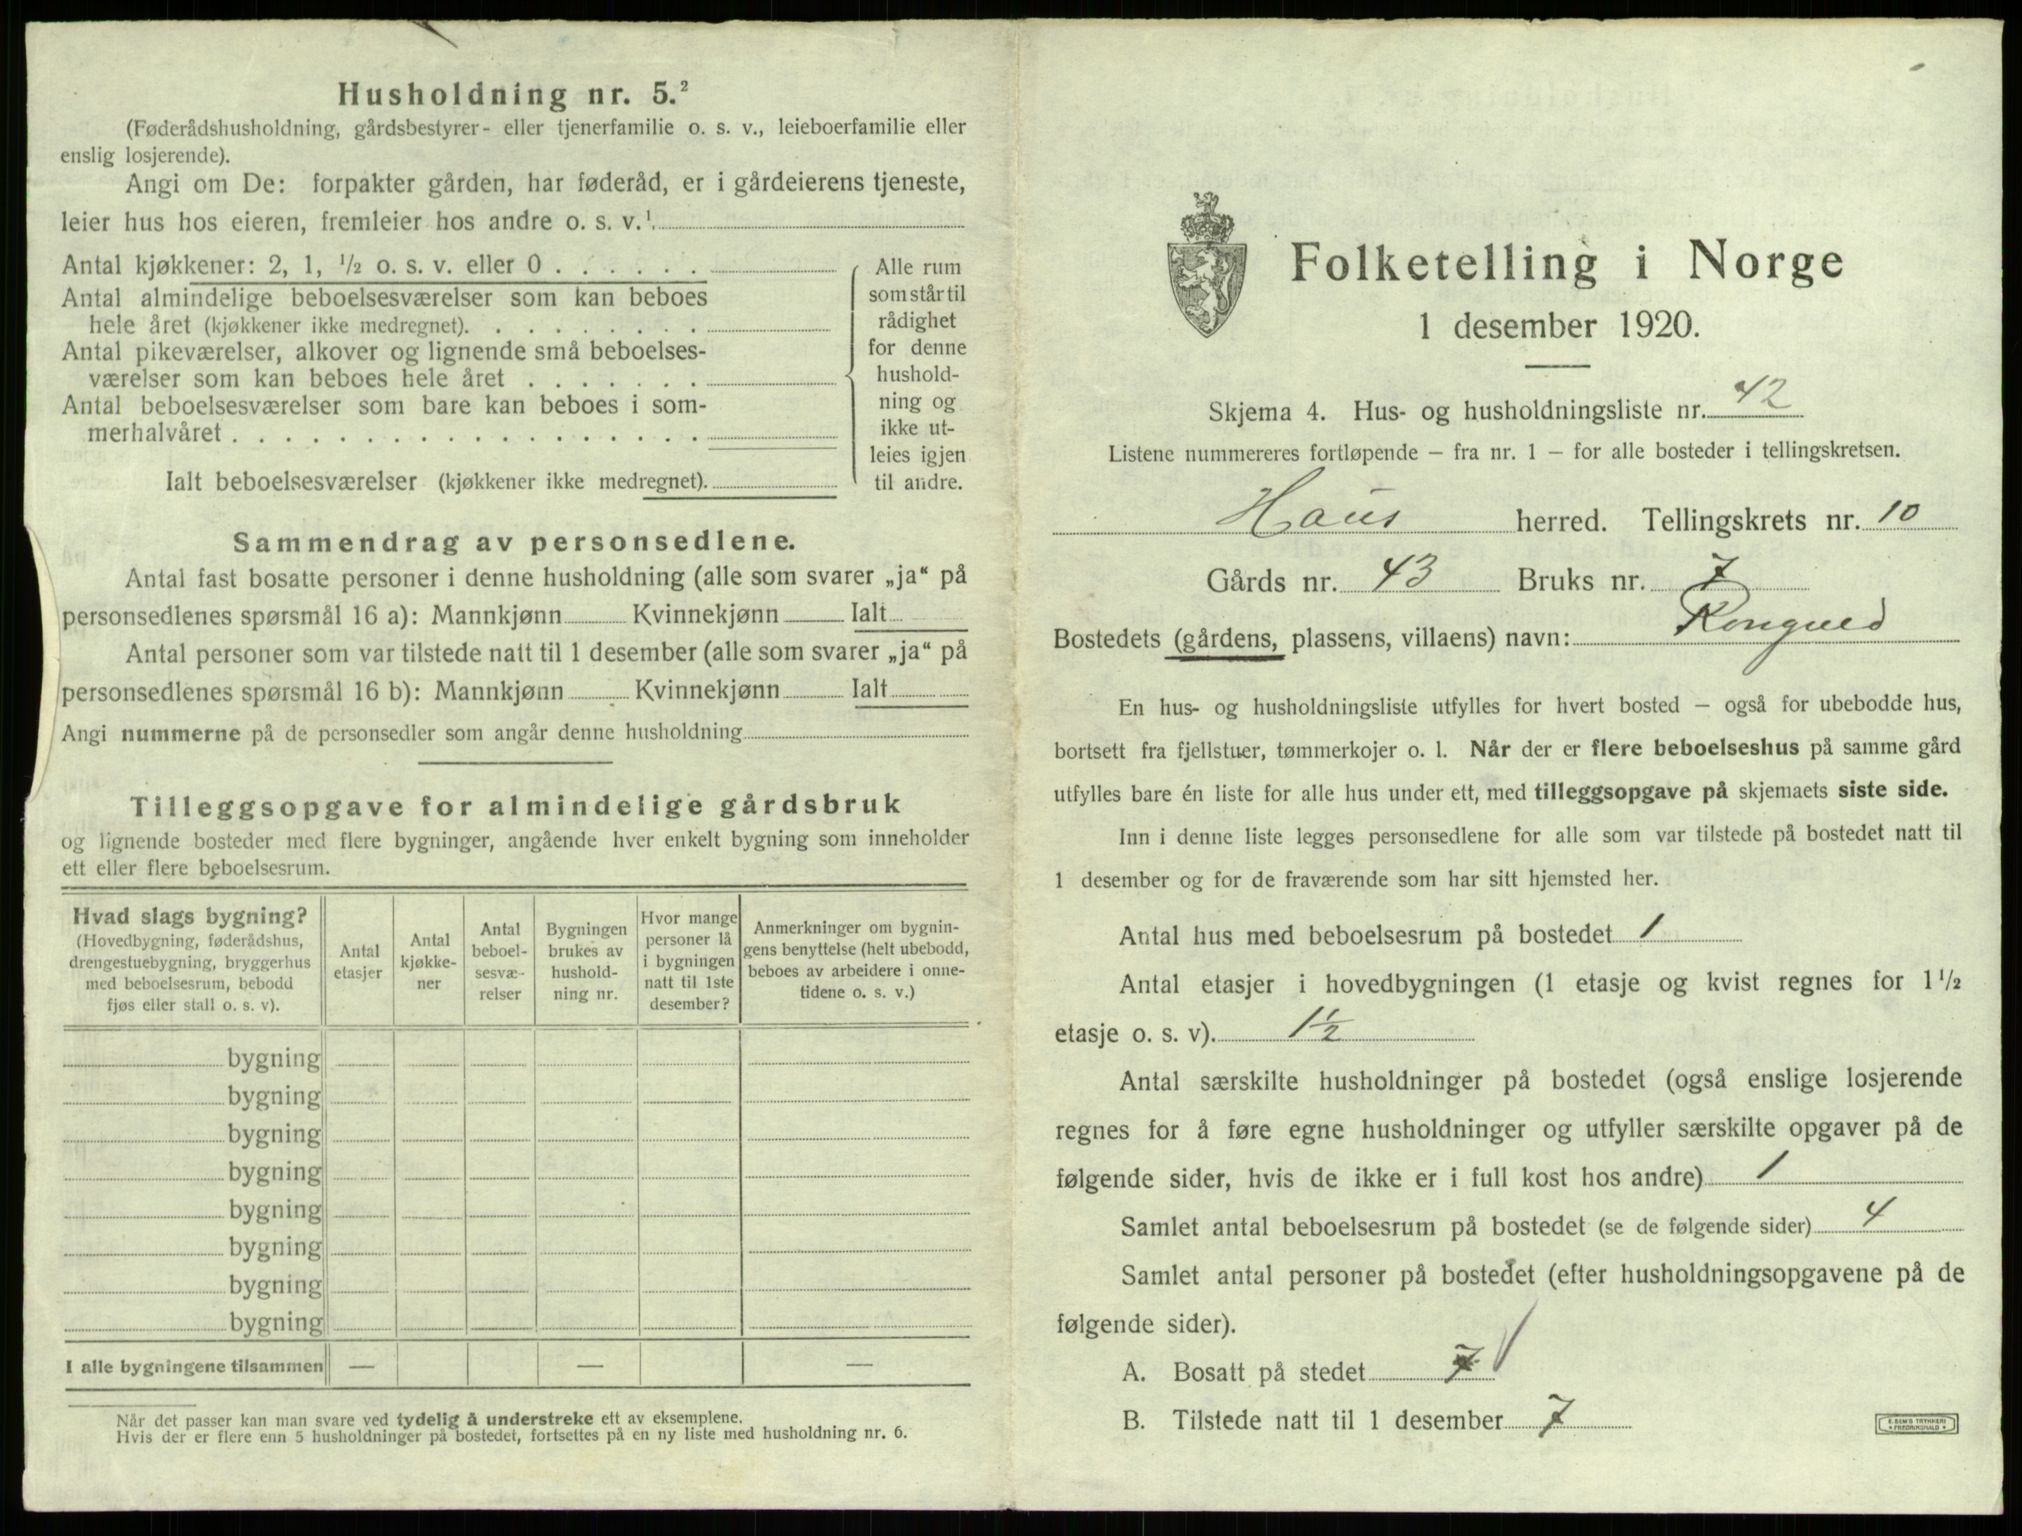 Husholdning nr. 5.²
(Føderådshusholdning, gårdsbestyrer- eller tjenerfamilie o. s. v., leieboerfamilie eller
enslig losjerende).
Angi om De: forpakter gården, har føderåd, er i gårdeierens tjeneste,
leier hus hos eieren, fremleier hos andre o. s. v.¹
Antal kjøkkener: 2, 1, ½ o. s. v. eller 0 . . . . . .
Antal almindelige beboelsesværelser som kan beboes
hele året (kjøkkener ikke medregnet). . . . . . . . .
Antal pikeværelser, alkover og lignende små beboelses-
værelser som kan beboes hele året . . . . . . .
Antal beboelsesværelser som bare kan beboes i som-
merhalvåret . . . . . . . . . . . . . . . . . .
Ialt beboelsesværelser (kjøkkener ikke medregnet).
Alle rum
som står til
rådighet
for denne
hushold-
ning og
ikke ut-
leies igjen
til andre.
Sammendrag av personsedlene.
Antal fast bosatte personer i denne husholdning (alle som svarer „ja“ på
personsedlenes spørsmål 16 a): Mannkjønn Kvinnekjønn Ialt
Antal personer som var tilstede natt til 1 desember (alle som svarer „ja“ på
personsedlenes spørsmål 16 b): Mannkjønn Kvinnekjønn Ialt
Angi nummerne på de personsedler som angår denne husholdning
Tilleggsopgave for almindelige gårdsbruk
og lignende bosteder med flere bygninger, angående hver enkelt bygning som inneholder
ett eller flere beboelsesrum.
Hvad slags bygning?
(Hovedbygning, føderådshus,
drengestuebygning, bryggerhus
med beboelsesrum, bebodd
fjøs eller stall o. s. v).
Antal
etasjer
Antal
kjøkke-
ner
Antal
beboel-
sesvæ-
relser
Bygningen
brukes av
hushold-
ning nr.
Hvor mange
personer lå
i bygningen
natt til 1ste
desember?
Anmerkninger om bygnin-
gens benyttelse (helt ubebodd,
beboes av arbeidere i onne-
tidene o. s. v.)
bygning
bygning
bygning
bygning
bygning
bygning
bygning
bygning
I alle bygningene tilsammen — — —
Når det passer kan man svare ved tydelig å understreke ett av eksemplene.
Hvis der er flere enn 5 husholdninger på bostedet, fortsettes på en ny liste med husholdning nr. 6.
Folketelling i Norge
1 desember 1920.
Skjema 4. Hus- og husholdningsliste nr. 42
Listene nummereres fortløpende – fra nr. 1 – for alle bosteder i tellingskretsen.
Haus herred. Tellingskrets nr. 10
Gårds nr. 43 Bruks nr. 7
Bostedets (gårdens, plassens, villaens) navn:
En hus- og husholdningsliste utfylles for hvert bosted – også for ubebodde hus,
bortsett fra fjellstuer, tømmerkojer o. l. Når der er flere beboelseshus på samme gård
utfylles bare én liste for alle hus under ett, med tilleggsopgave på skjemaets siste side.
Inn i denne liste legges personsedlene for alle som var tilstede på bostedet natt til
1 desember og for de fraværende som har sitt hjemsted her.
Antal hus med beboelsesrum på bostedet 1
Antal etasjer i hovedbygningen (1 etasje og kvist regnes for 1 ½
etasje o. s. v). 1½
Antal særskilte husholdninger på bostedet (også enslige losjerende
regnes for å føre egne husholdninger og utfyller særskilte opgaver på de
følgende sider, hvis de ikke er i full kost hos andre) 1
Samlet antal beboelsesrum på bostedet (se de følgende sider) 4
Samlet antal personer på bostedet (efter husholdningsopgavene på de
følgende sider).
A. Bosatt på stedet 7
B. Tilstede natt til 1 desember 7